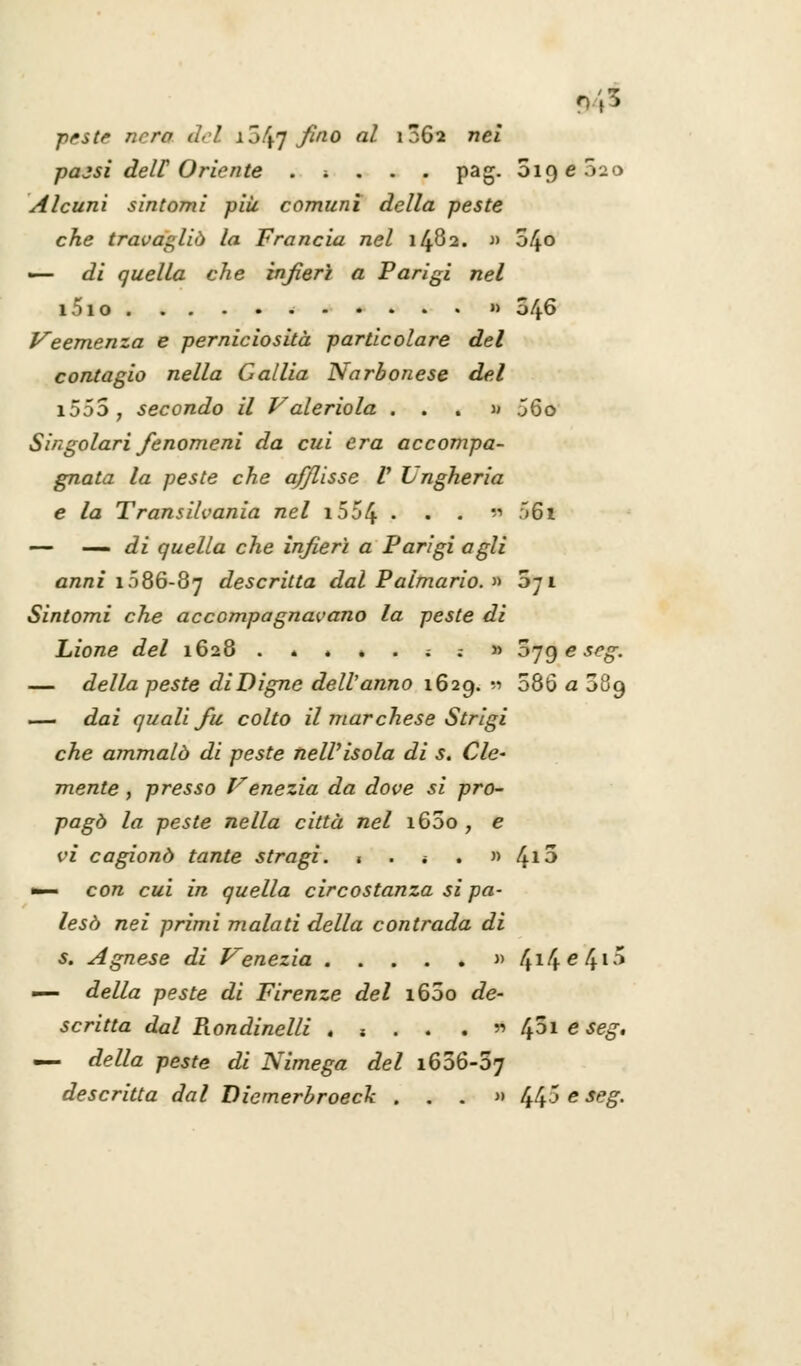 943
peste nera del 1347 fino al 1362 nei
paesi dell' Oriente . . . . . pag. 319 e 320
Alcuni sintomi più comuni della peste
che travagliò la Francia nel 1482. » 340
— di quella che infierì a Parigi nel
1510 . . . . . . . . . . . . » 346
Veemenza e perniciosità particolare del
contagio nella Gallia Narbonese del
1553, secondo il Valeriola . . . » 360
Singolari fenomeni da cui era accompa-
gnata la peste che afflisse l' Ungheria
e la Transilvania nel 1554 . . . » 361
— — di quella che infierì a Parigi agli
anni 1586-87 descritta dal Palmario. » 371
Sintomi che accompagnavano la peste di
Lione del 1628 . . . . . . . » 379 e seg.
— della peste di Digne dell'anno 1629. » 386 a 389
— dai quali fu colto il marchese Strigi
che ammalò di peste nell'isola di s. Cle-
mente, presso Venezia da dove si pro-
pagò la peste nella città nel 1630, e
vi cagionò tante stragi. . . . . » 413
— con cui in quella circostanza si pa-
lesò nei primi malati della contrada di
s. Agnese di Venezia . . . . . » 414 e 415
— della peste di Firenze del 1630 de-
scritta dal Rondinelli . . . . . » 431 e seg.
— della peste di Nimega del 1636-37
descritta dal Diemerbroeck . . . » 445 e seg.